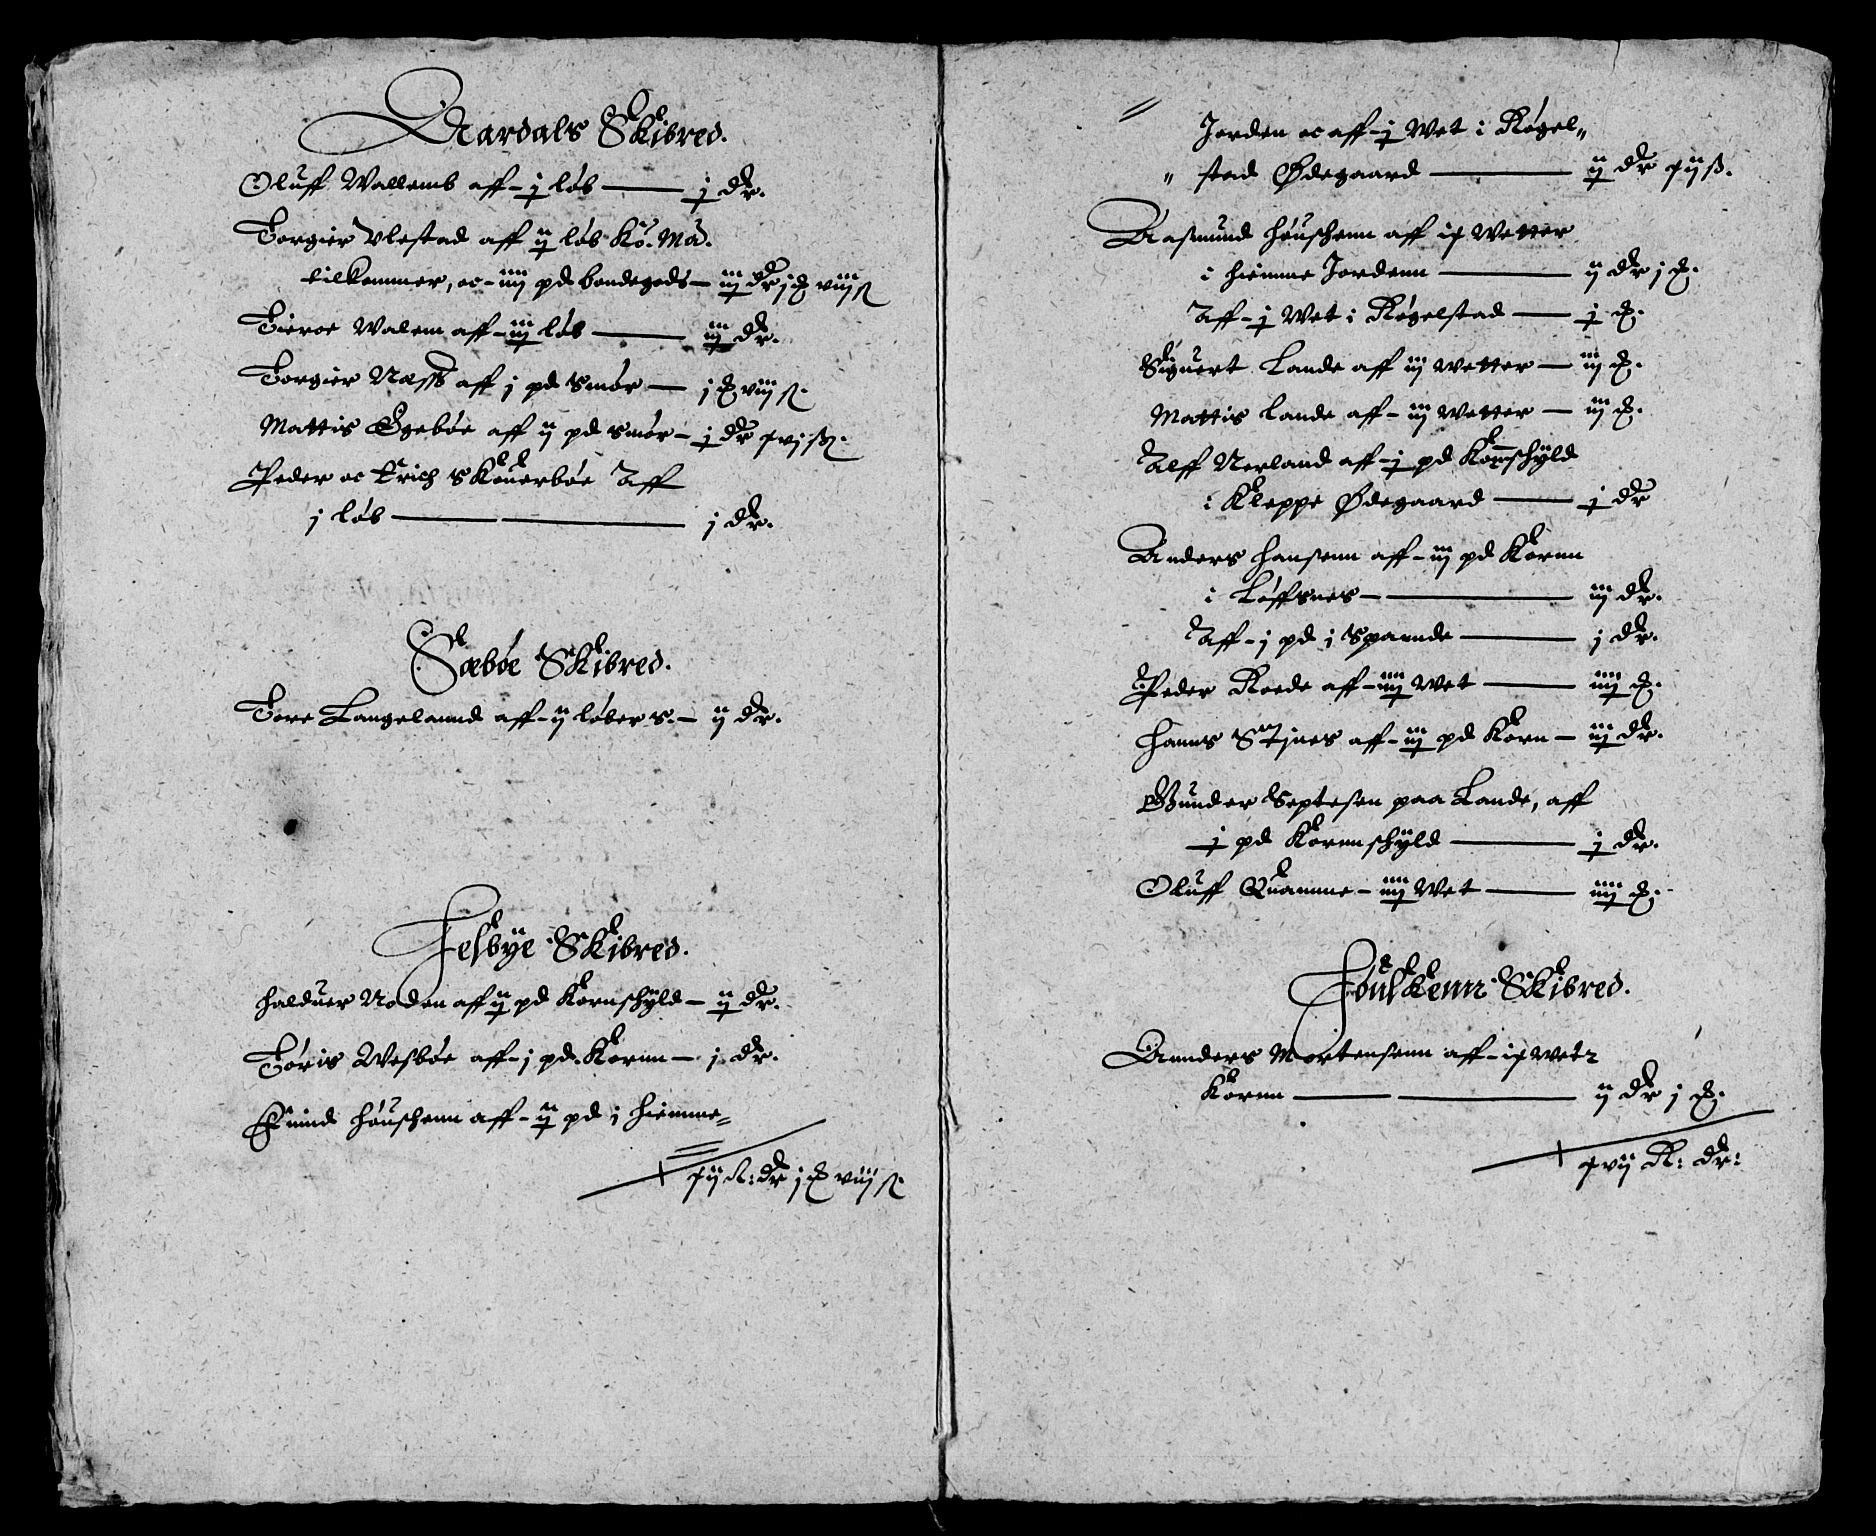 Aardals Skibred.
Oluff Wallemb aff - j løb — j dr.
Torgier Vlestad aff ij løb Ko. Ma.
tilkommer, oc - iiij pd bondegods — iij dr j ß viij s
Tieroe Walem aff - iij løb — iij dr.
Torgier Nass aff j pd Smør — j viij s.
Mattis Egebøe aff ij pd smør — j dr xvj s.
Peder oc Erich Skouerbøe Aff
j løb — j dr.
Sæbøe Skibred.
Tore Langelannd aff - ij løber s. — ij dr.
Jelsøye Skibred.
Halduer Noden aff ij pd Kornschyld — ij dr.
Toris Wesbøe aff - j pd. Kornn — j dr.
Euind Høuschenn aff - ij pd j hiemme=
xij R: dr j viij s.
Jorden oc aff - j Wet i Røgel„
„ stad Ødegaard — ij dr xij s.
Aasmund Høuschenn aff ix Wetter
i hiemme Jordenn — ij dr j
Aff - j Wet i Røgelstad — j
Siguert Lande aff iij Wetter — iij
Mattis Lande aff - iij Wetter — iij
Alff Nerland aff - j pd Kornschyld
i Kleppe Ødegaard — j dr
Anders Hansenn aff - iij pd Kornn
i Løffsnes — iij dr.
Aff - j pd i Spannde — j dr.
Peder Roede aff - iiij Wet — iiij
Hanns aff - iij pd Korn — iij dr.
Gunder Septesen paa Lande, aff
j pd Kornnschyld — j dr.
Oluff Quamme - iiij Wet — iiij
Skibred.
Annders Mortensenn aff - ix Wett
Kornn — ij dr j
xvij R: dr: